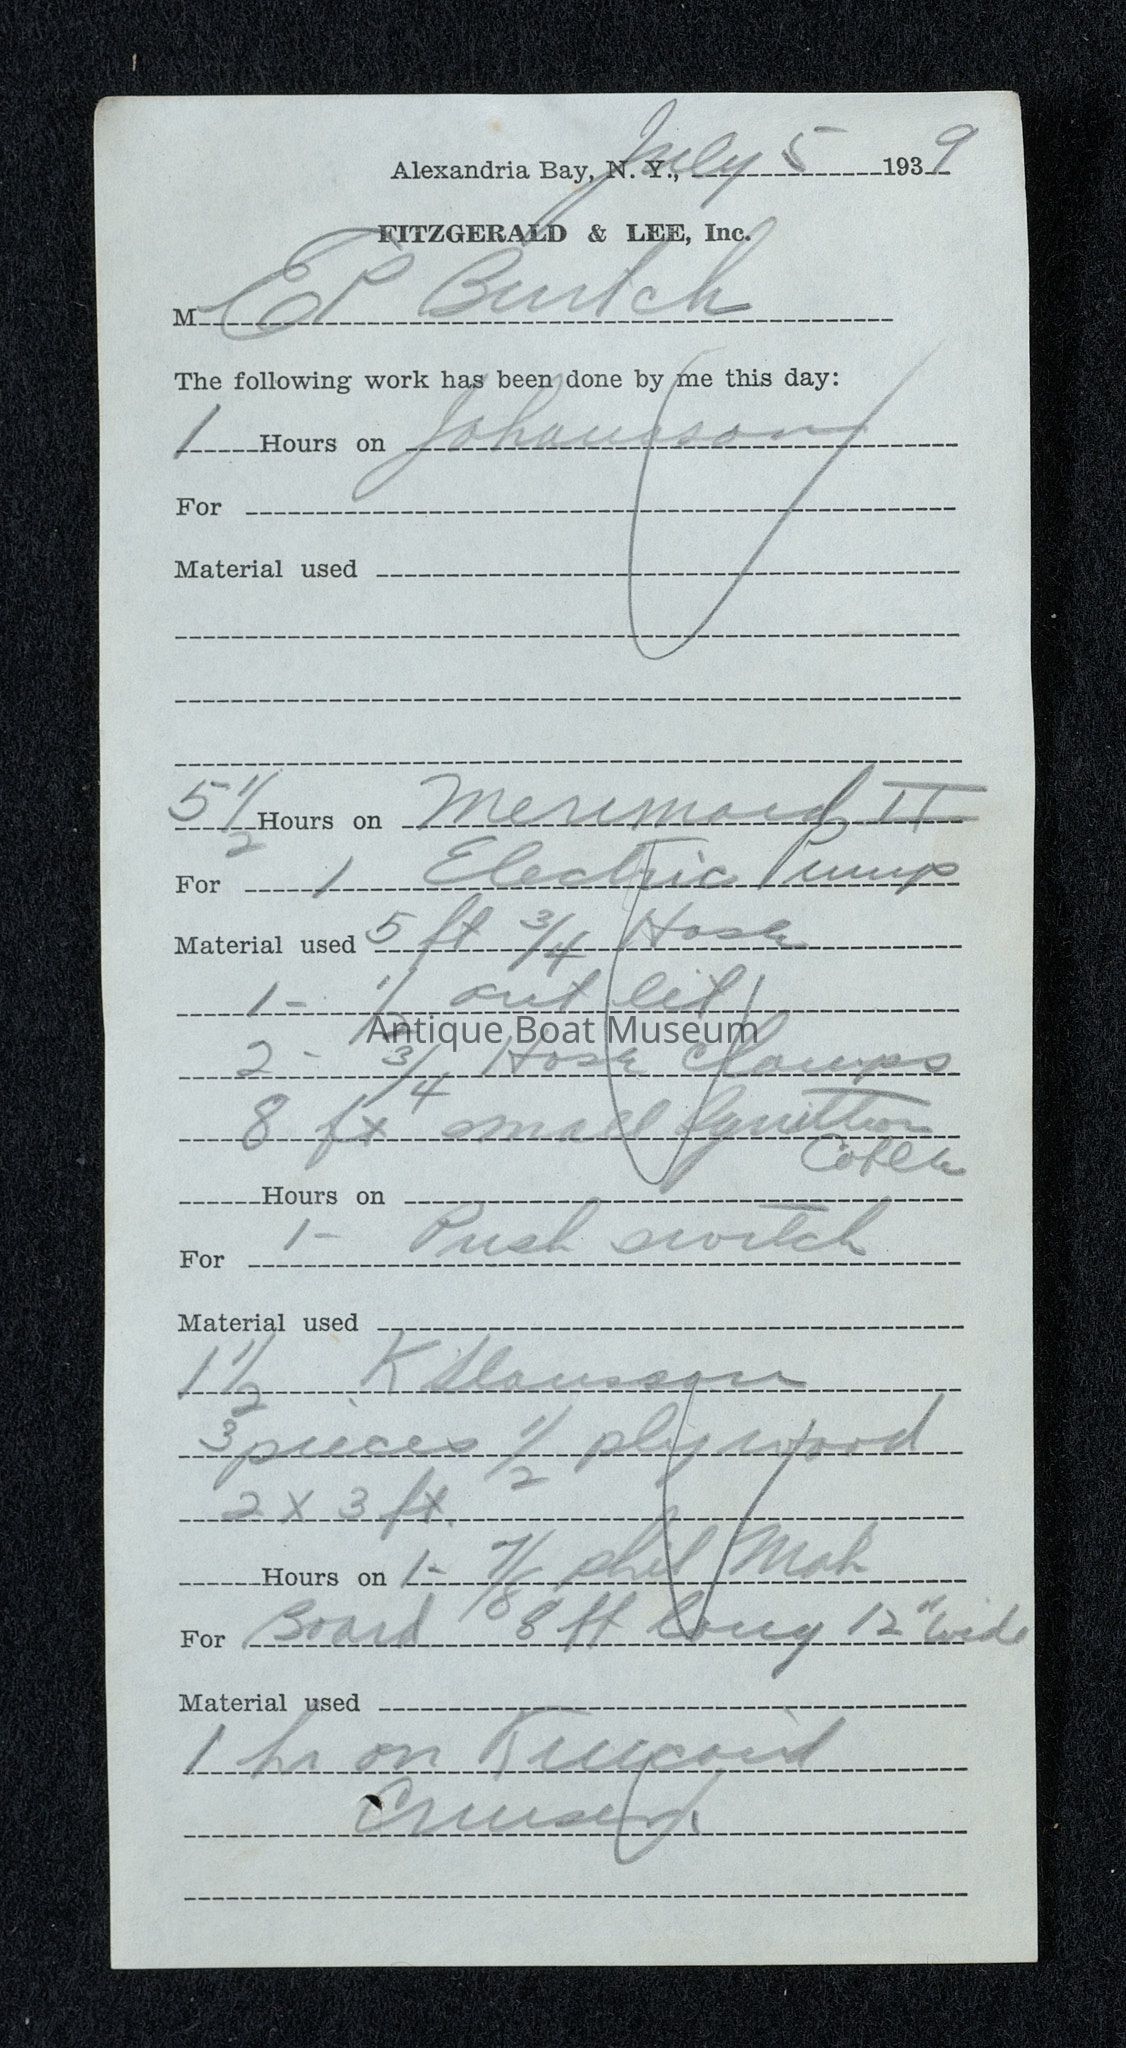 Alexandria Bay, N. Y., July 5 1939
FITZGERALD & LEE, Inc.
M EP Burtch
The following work has been done by me this day:
1 Hours on Johansson
For
Material used
5 1/2 Hours on Merimaid II
For 1 Electric Pump
Material used 5 ft 3/4 Hose
1 - 1/2 out let
Antique Boat Museum
2 - 3/4 Hose Clamps
8 ft small Ignition
Cable
Hours on
For 1 - Push switch
Material used
1 1/2
3 pieces 1/2 plywood
2 x 3 ft.
Hours on 1 - 7/8 phil Mah
For Board 8 ft long 12" wide
Material used
1 hr on Kincaid
Cruiser